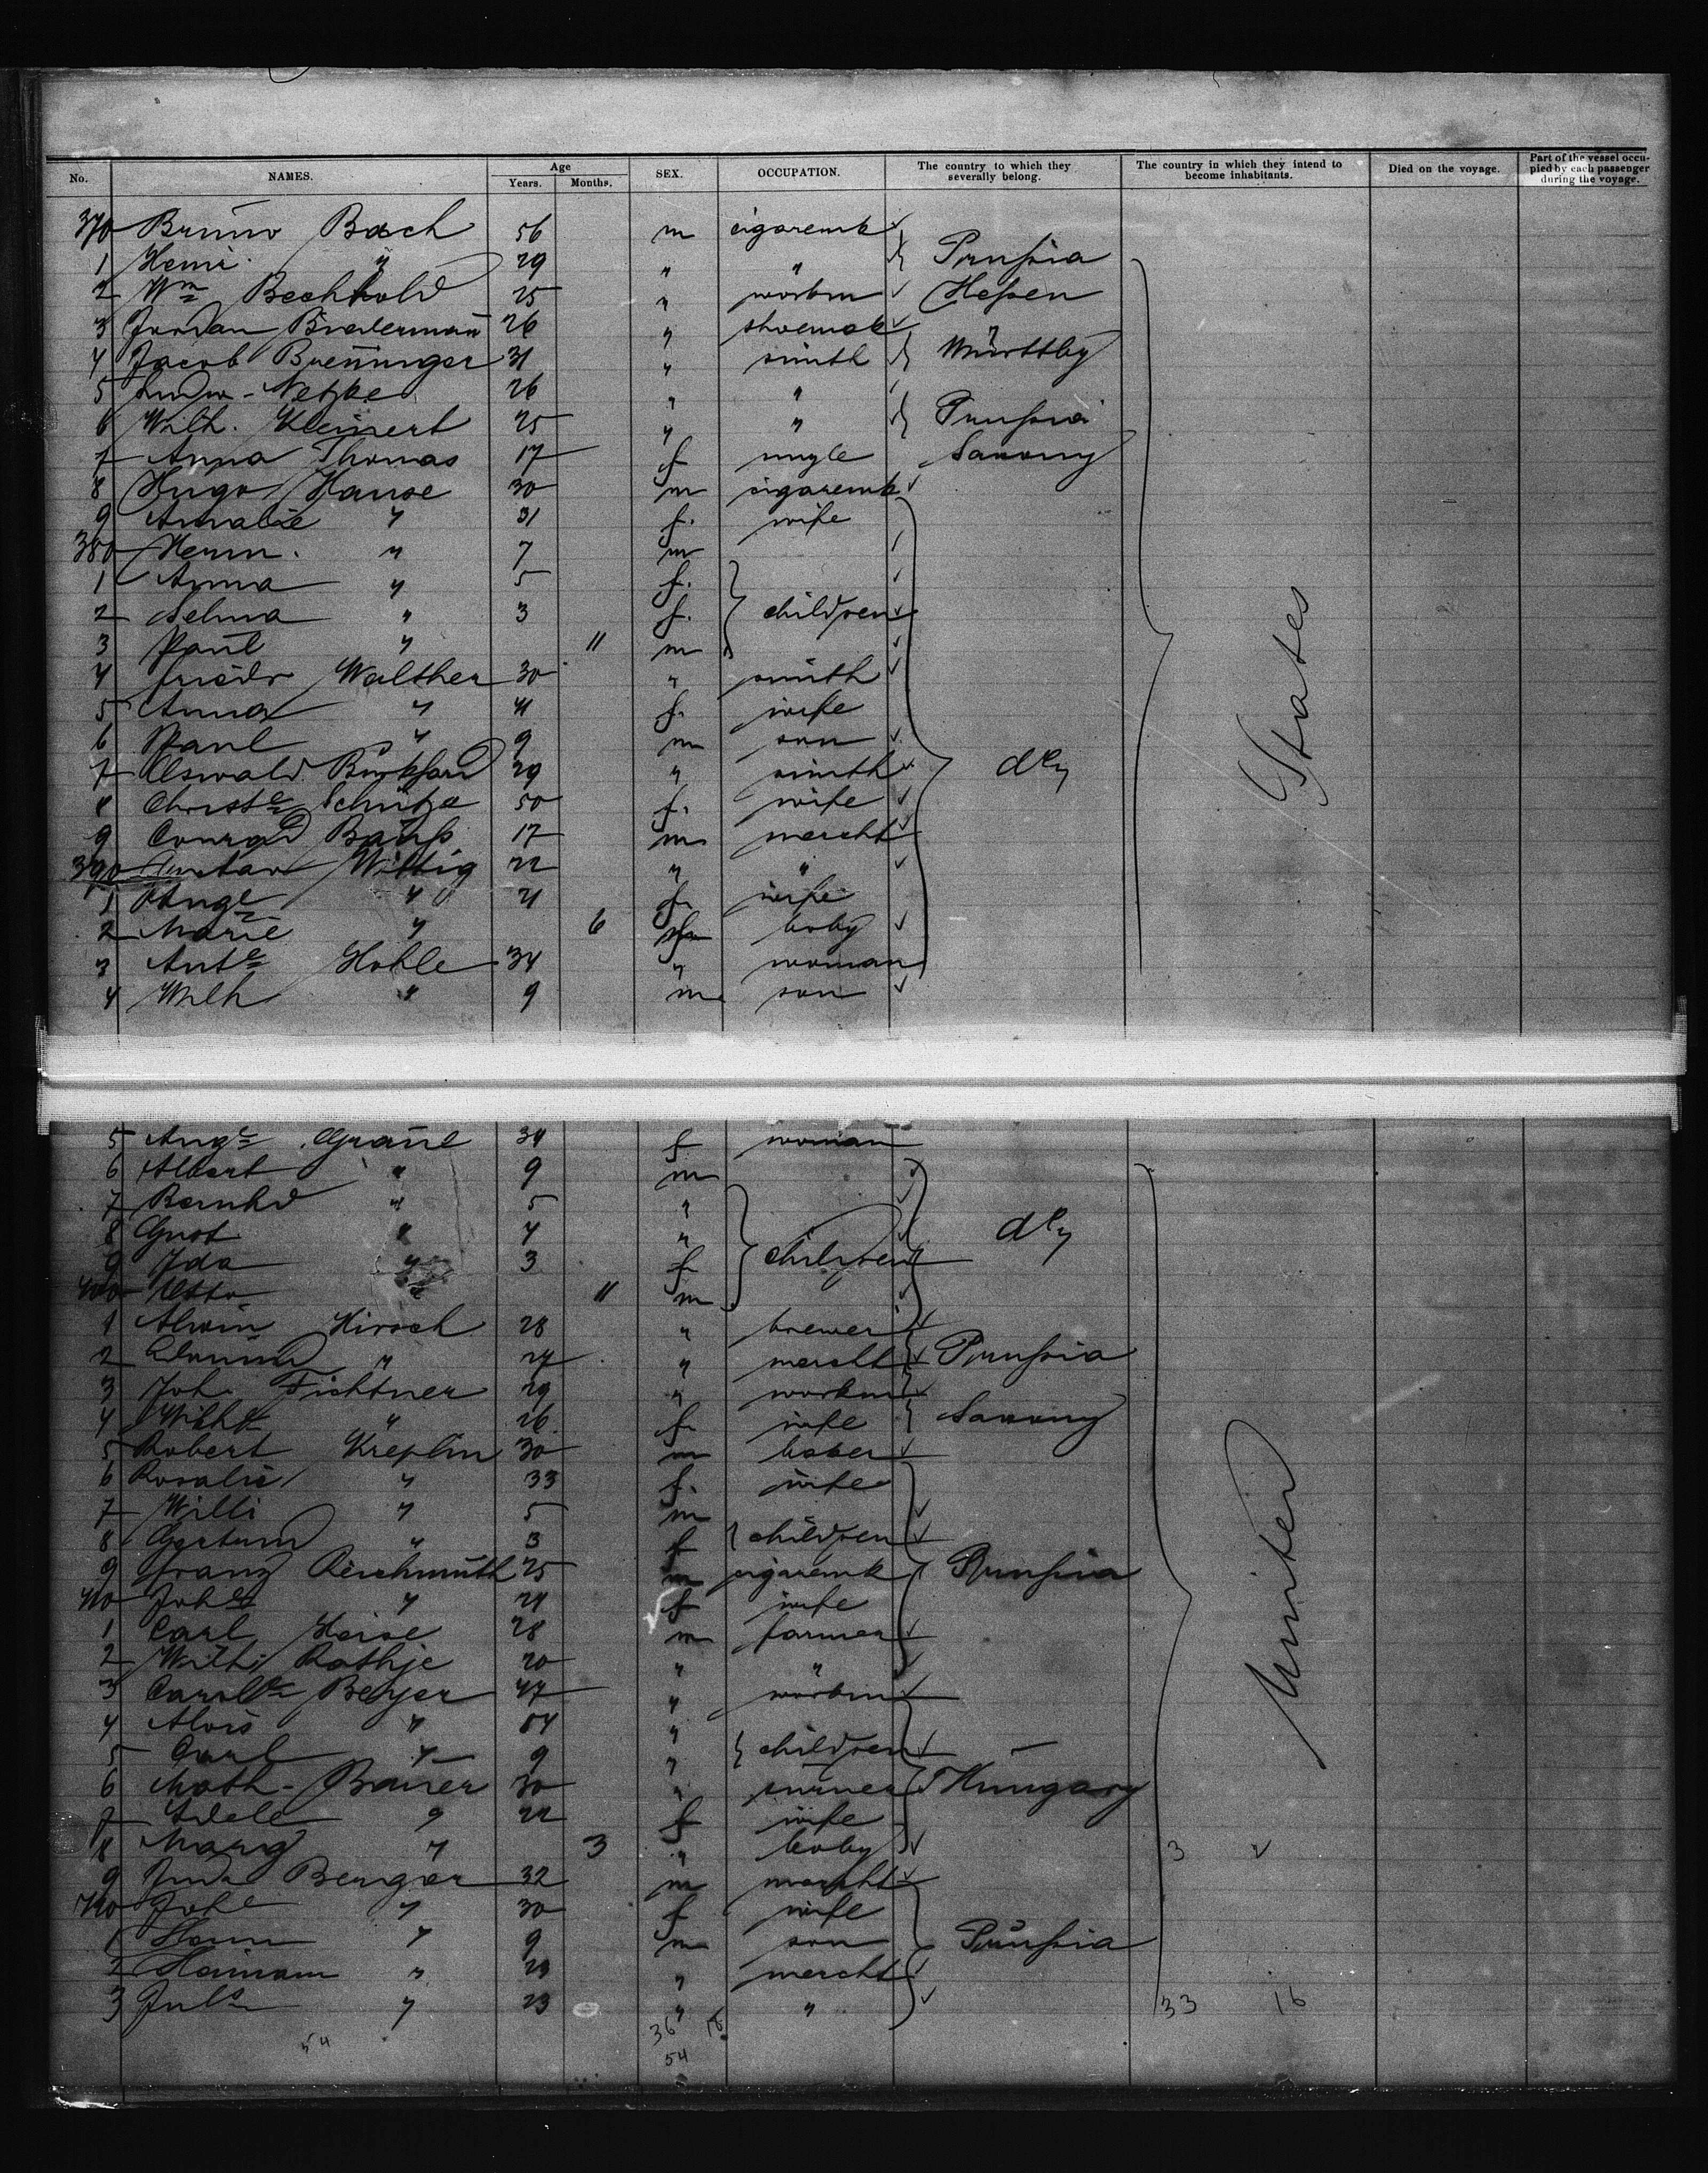 No. NAMES. Age Years. Months. SEX. OCCUPATION. The country to which they severally belong. The country in which they intend to become inhabitants. Died on the voyage. Part of the vessel occupied by each passenger during the voyage.
370 Bruno Bach 56 m cigaremk
1 Henri " 29 " " Prussia
2 Wm Bechhold 25 " workm Hessen
3 Jordan Biedermann 26 " shoemak
4 Jacob Brenninger 31 " smith Württbg
5 Ludw - Netzke 26 " "
6 Wilh. Kleinert 25 " " Prussia
7 Anna Thomas 17 f single Saxony
8 Hugo Hanse 30 m cigaremk
9 Amalie " 31 f. wife
380 Herm. " 7 m
1 Anna " 5 f.
2 Selma " 3 f. children
3 Paul " 11 m
4 Friedr Walther 30 " smith
5 Anna " 41 f. wife
6 Paul " 9 m son
7 Oswald Burkhard 29 " smith dly
8 Christe Schütze 50 f. wife
9 Conrad 17 m mercht
390 Gustav Wittig 22 " "
1 Auge " 21 f. wife
2 Marie " 6 baby
3 Ante Hohle 34 " woman
4 Wilh " 9 m son
States
5 Auge Graül 34 f woman
6 Albert " 9 m
7 Bernhd " 5 "
8 Gust " 4 " dly
9 Ida " 3 f children
400 Otto " 11 m
1 Alwin Hirsch 28 " brewer
2 " 24 " mercht Prussia
3 Joh. Fichtner 29 " workm
4 " 26 f. wife Saxony
5 Robert Kreplin 30 m baker
6 Rosalie " 33 f. wife
7 Willi " 5 m
8 Gertrud " 3 f children
9 Franz Reichmuth 25 m cigaremk Prussia
410 Johe " 24 f wife
1 Carl Heise 28 m farmer
2 Wilh. Rathje 20 " "
3 Carole Beyer 47 " workm
4 Alois " "
5 Carl " 9 " children
6 Math - Bauer 30 " Hungary
7 Adele " 22 f wife
8 Marg " 3 " baby 3
9 Berger 32 m mercht
420 Johe " 30 f wife
1 Herm " 9 m son Prussia
2 Hermann " " mercht
3 Juls " 23 " " 33 16
United
54 36 18
54